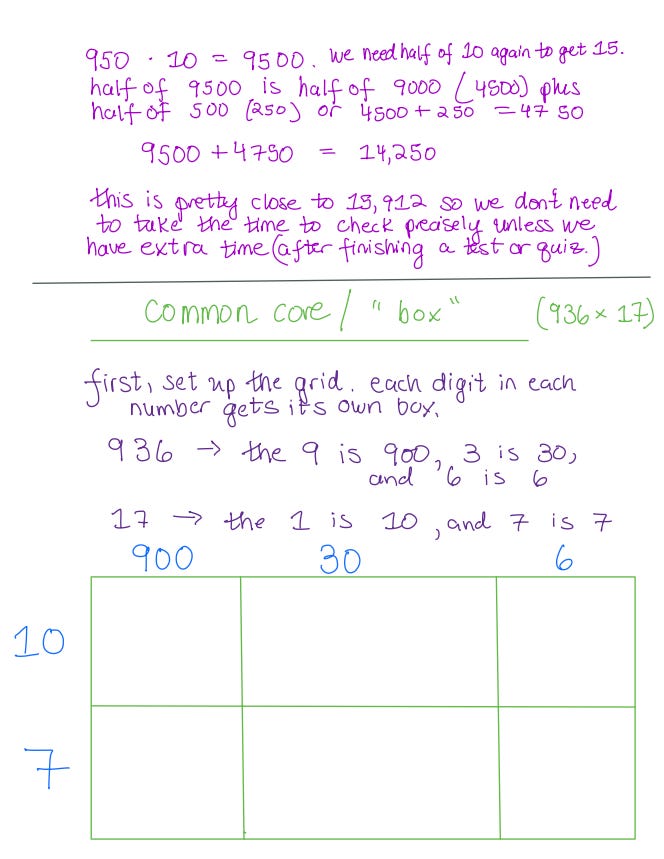 950 · 10 = 9500. We need half of 10 again to get 15.
half of 9500 is half of 9000 (4500) plus
half of 500 (250) or 4500 + 250 = 4750
9500 + 4750 = 14,250
this is pretty close to 15,912 so we don't need
to take the time to check precisely unless we
have extra time (after finishing a test or quiz.)
common core / "box" (936 × 17)
first, set up the grid. each digit in each
number gets it's own box.
936 → the 9 is 900, 3 is 30,
and 6 is 6
17 → the 1 is 10, and 7 is 7
900 30 6
10
7